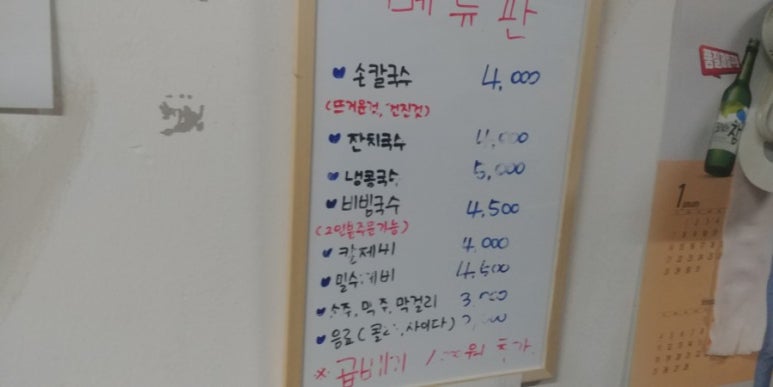 메뉴판
손칼국수 4,000
(뜨거운것, 건진것)
잔치국수 4,000
냉콩국수 5,000
비빔국수 4,500
(2인분주문가능)
칼제비 4,000
밀수제비 4,500
소주, 맥주, 막걸리 3,000
음료(콜라, 사이다)
※ 곱배기 추가
1
참